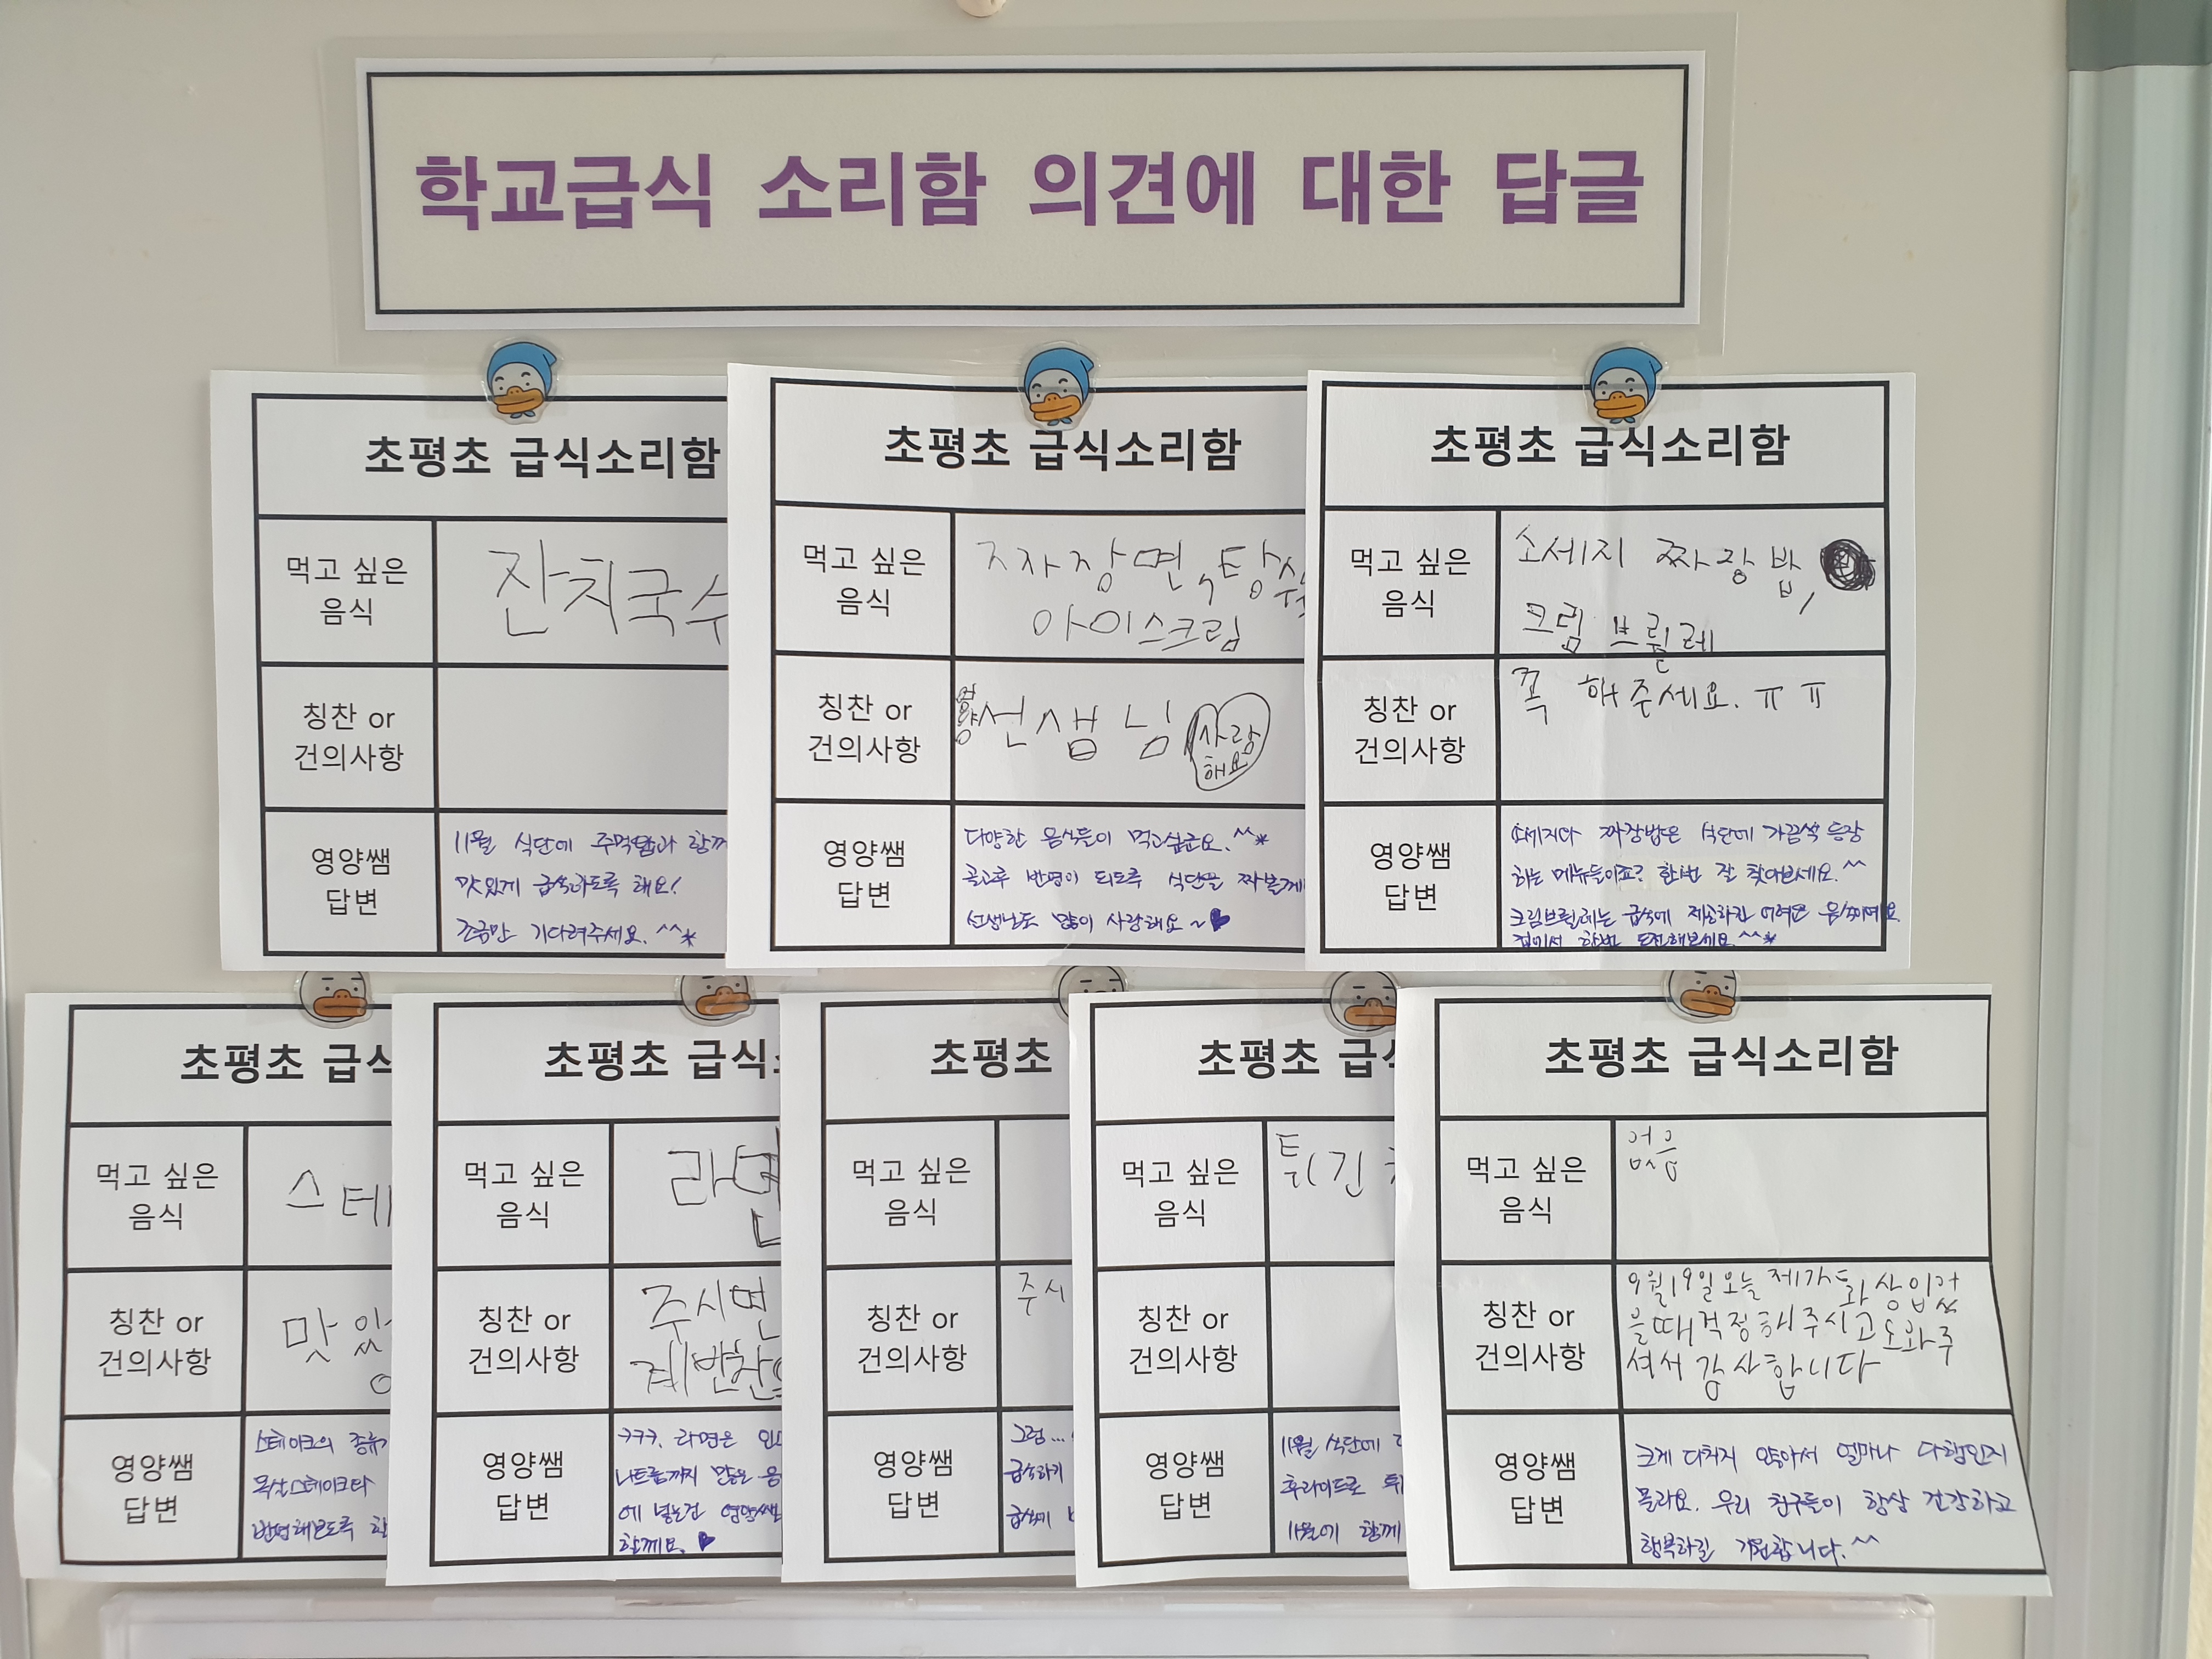 학교급식 소리함 의견에 대한 답글
초평초 급식소리함
먹고 싶은
음식
잔치국수
칭찬 or
건의사항
영양쌤
답변
11월 식단에 주먹밥과 함께
맛있게 급식하도록 해요!
조금만 기다려주세요.^^*
초평초 급식소리함
먹고 싶은
음식
짜장면, 탕수
아이스크림
칭찬 or
건의사항
영양선생님 사랑
해요
영양쌤
답변
다양한 음식들이 먹고싶군요.^^*
골고루 반영이 되도록 식단을 짜볼게
선생님도 많이 사랑해요~♥
초평초 급식소리함
먹고 싶은
음식
소세지 짜장밥,
크림 브륄레
칭찬 or
건의사항
꼭 해주세요. ㅠㅠ
영양쌤
답변
소세지다 짜장밥은 식단에 가끔씩 등장
하는 메뉴들이죠? 한번 잘 찾아보세요.^^
크림브륄레는 급식에 제공하긴 어려운 음식이예요
집에서 한번 도전해보세요.^^*
초평초 급식
먹고 싶은
음식
스테
칭찬 or
건의사항
맛있
영양쌤
답변
스테이크의 종류가
목살스테이크다
반영해보도록 하
초평초 급식소
먹고 싶은
음식
라면
칭찬 or
건의사항
주시면
영양쌤
답변
ㅋㅋㅋ. 라면은 인
나트륨까지 많은 음
에 넣는건 영양쌤
할께요. ♥
초평초
먹고 싶은
음식
칭찬 or
건의사항
주시
영양쌤
답변
그럼...
급식하기
급식에
초평초 급식
먹고 싶은
음식
튀긴
칭찬 or
건의사항
영양쌤
답변
11월 식단에
후라이드로 튀
11월에 함께
초평초 급식소리함
먹고 싶은
음식
없음
칭찬 or
건의사항
9월19일 오늘 제가 화상입었
을때 걱정해주시고 도와주
셔서 감사합니다
영양쌤
답변
크게 다치지 않아서 얼마나 다행인지
몰라요. 우리 친구들이 항상 건강하고
행복하길 기원합니다.^^